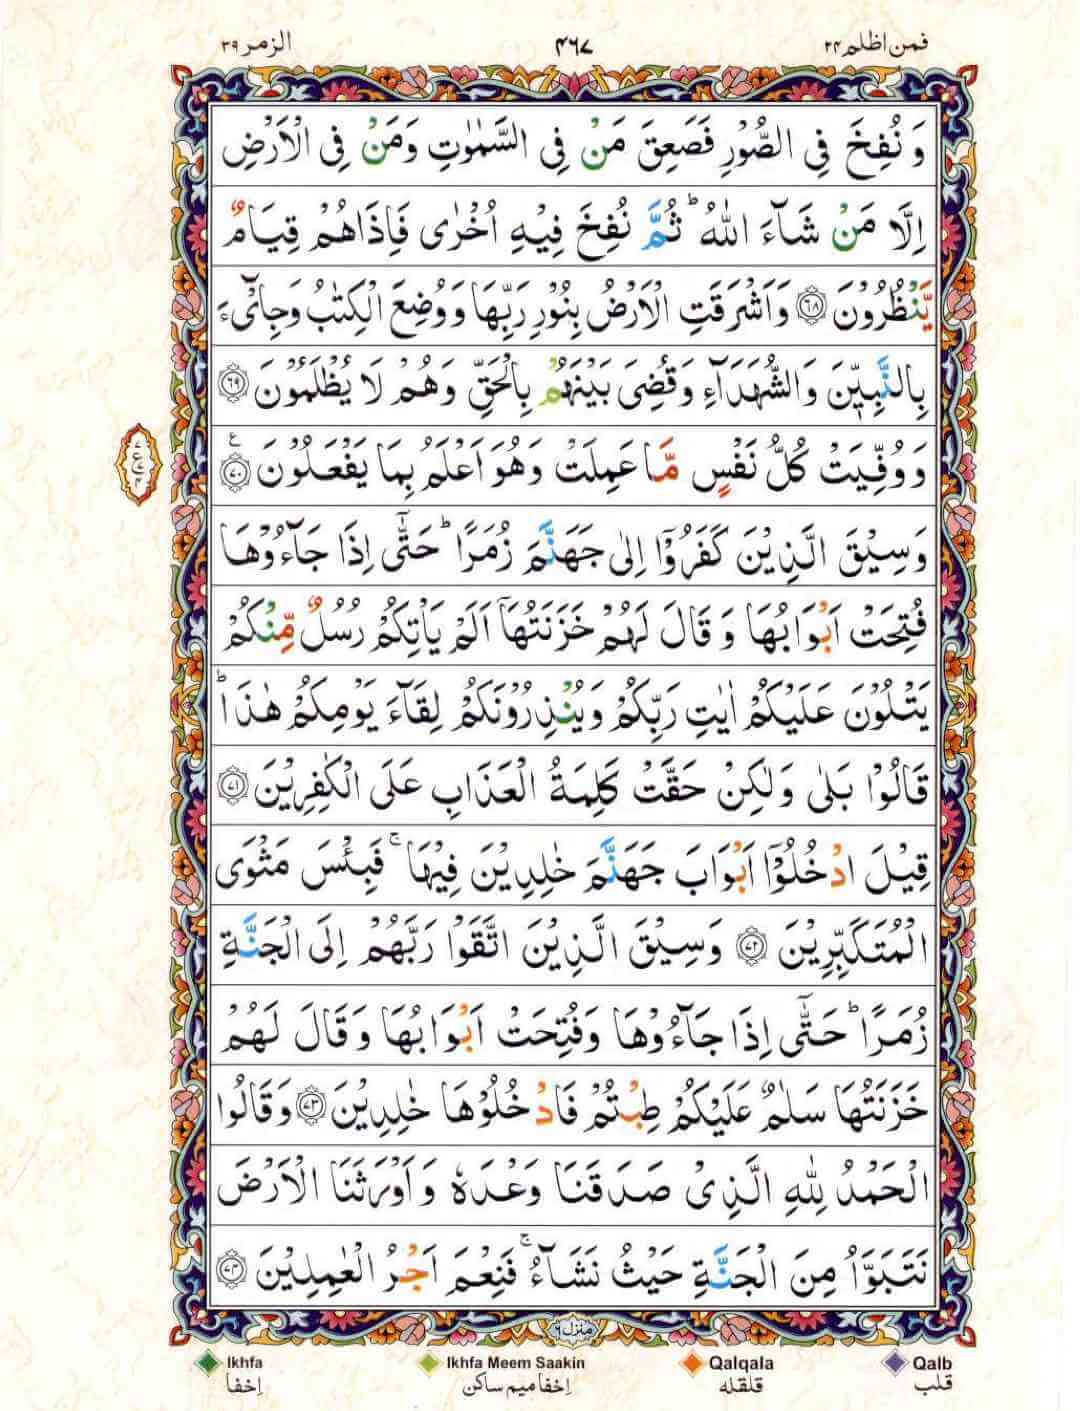 فمن اظلم ۲۴
۴۶۷
الزمر ۳۹
وَ نُفِخَ فِی الصُّوْرِ فَصَعِقَ مَنْ فِی السَّمٰوٰتِ وَمَنْ فِی الْاَرْضِ
اِلَّا مَنْ شَآءَ اللّٰهُ ؕ ثُمَّ نُفِخَ فِیْهِ اُخْرٰی فَاِذَاهُمْ قِیَامٌ
یَّنْظُرُوْنَ ﴿۶۸﴾ وَاَشْرَقَتِ الْاَرْضُ بِنُوْرِ رَبِّهَا وَوُضِعَ الْكِتٰبُ وَجِایْٓءَ
بِالنَّبِیّٖنَ وَالشُّهَدَآءِ وَقُضِیَ بَیْنَهُمْ بِالْحَقِّ وَهُمْ لَا یُظْلَمُوْنَ ﴿۶۹﴾
وَوُفِّیَتْ كُلُّ نَفْسٍ مَّا عَمِلَتْ وَهُوَ اَعْلَمُ بِمَا یَفْعَلُوْنَ ﴿۷۰﴾ ع
وَسِیْقَ الَّذِیْنَ كَفَرُوْۤا اِلٰی جَهَنَّمَ زُمَرًا ؕ حَتّٰۤی اِذَا جَآءُوْهَا
فُتِحَتْ اَبْوَابُهَا وَ قَالَ لَهُمْ خَزَنَتُهَاۤ اَلَمْ یَاْتِكُمْ رُسُلٌ مِّنْكُمْ
یَتْلُوْنَ عَلَیْكُمْ اٰیٰتِ رَبِّكُمْ وَیُنْذِرُوْنَكُمْ لِقَآءَ یَوْمِكُمْ هٰذَا ؕ
قَالُوْا بَلٰی وَلٰكِنْ حَقَّتْ كَلِمَةُ الْعَذَابِ عَلَی الْكٰفِرِیْنَ ﴿۷۱﴾
قِیْلَ ادْخُلُوْۤا اَبْوَابَ جَهَنَّمَ خٰلِدِیْنَ فِیْهَا ۚ فَبِئْسَ مَثْوَی
الْمُتَكَبِّرِیْنَ ﴿۷۲﴾ وَسِیْقَ الَّذِیْنَ اتَّقَوْا رَبَّهُمْ اِلَی الْجَنَّةِ
زُمَرًا ؕ حَتّٰۤی اِذَا جَآءُوْهَا وَفُتِحَتْ اَبْوَابُهَا وَقَالَ لَهُمْ
خَزَنَتُهَا سَلٰمٌ عَلَیْكُمْ طِبْتُمْ فَادْخُلُوْهَا خٰلِدِیْنَ ﴿۷۳﴾ وَقَالُوا
الْحَمْدُ لِلّٰهِ الَّذِیْ صَدَقَنَا وَعْدَهٗ وَاَوْرَثَنَا الْاَرْضَ
نَتَبَوَّاُ مِنَ الْجَنَّةِ حَیْثُ نَشَآءُ ۚ فَنِعْمَ اَجْرُ الْعٰمِلِیْنَ ﴿۷۴﴾
منزل ۶
Ikhfa Ikhfa Meem Saakin Qalqala Qalb
اِخفا اِخفا میم ساکن قلقله قلب